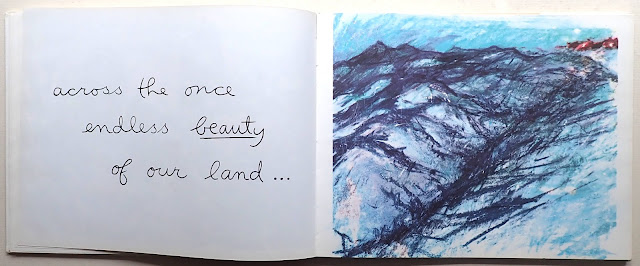 across the once
endless beauty
of our land...